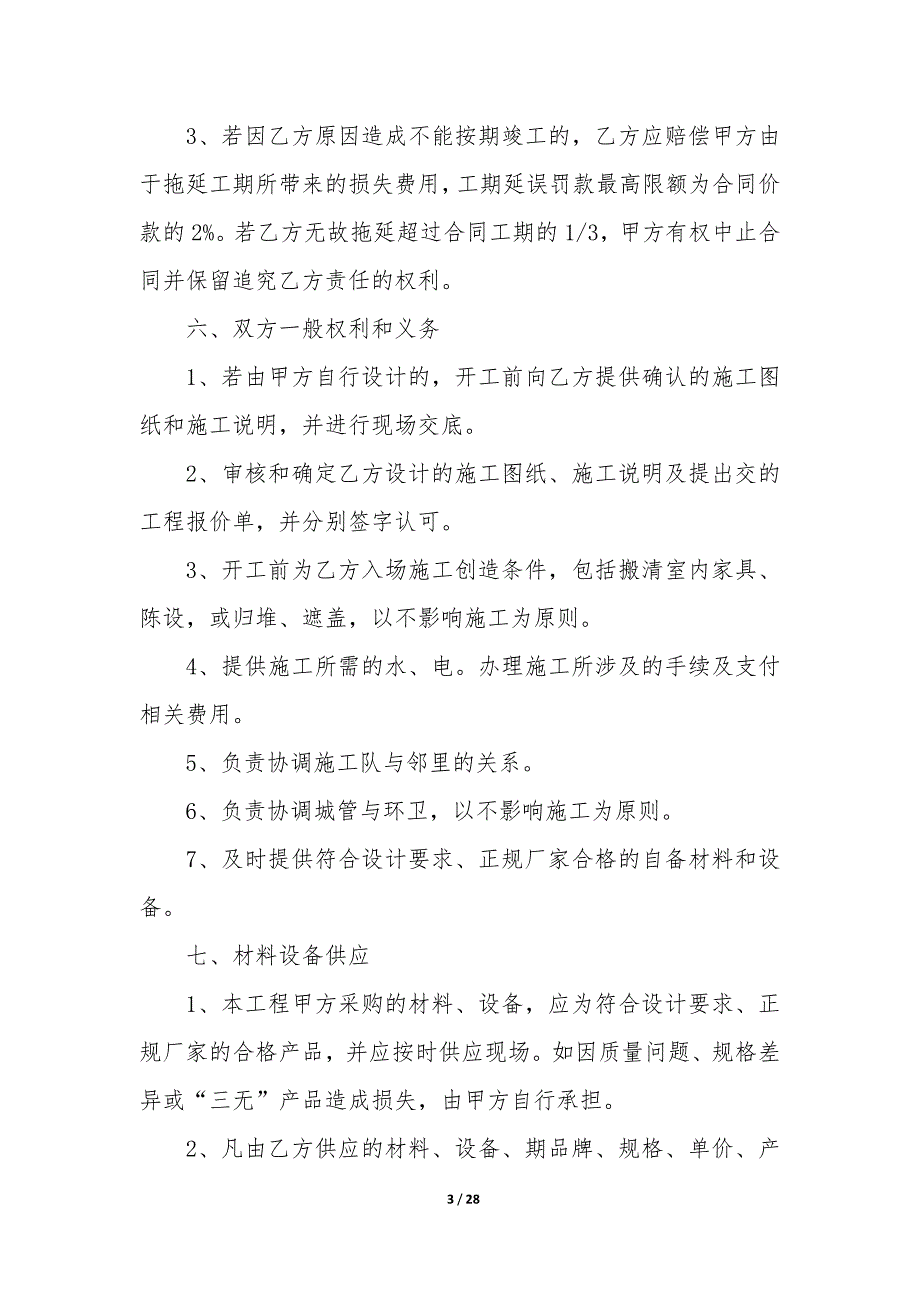 3、若因乙方原因造成不能按期竣工的，乙方应赔偿甲方由
于拖延工期所带来的损失费用，工期延误罚款最高限额为合同价
款的 2%。若乙方无故拖延超过合同工期的 1/3，甲方有权中止合
同并保留追究乙方责任的权利。
六、双方一般权利和义务
1、若由甲方自行设计的，开工前向乙方提供确认的施工图
纸和施工说明，并进行现场交底。
2、审核和确定乙方设计的施工图纸、施工说明及提出交的
工程报价单，并分别签字认可。
3、开工前为乙方入场施工创造条件，包括搬清室内家具、
陈设，或归堆、遮盖，以不影响施工为原则。
4、提供施工所需的水、电。办理施工所涉及的手续及支付
相关费用。
5、负责协调施工队与邻里的关系。
6、负责协调城管与环卫，以不影响施工为原则。
7、及时提供符合设计要求、正规厂家合格的自备材料和设
备。
七、材料设备供应
1、本工程甲方采购的材料、设备，应为符合设计要求、正
规厂家的合格产品，并应按时供应现场。如因质量问题、规格差
异或“三无”产品造成损失，由甲方自行承担。
2、凡由乙方供应的材料、设备、期品牌、规格、单价、产
3 / 28